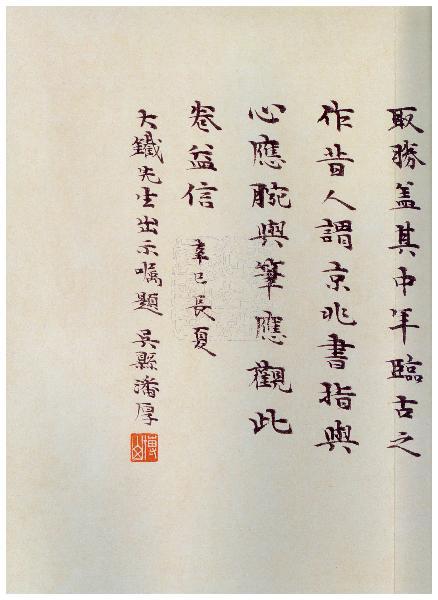 取勝蓋其中年臨古之
作昔人謂京兆書指與
心應腕與筆應觀此
卷益信
辛巳長夏
大鐵先生出示囑題 吳縣潘厚
博山